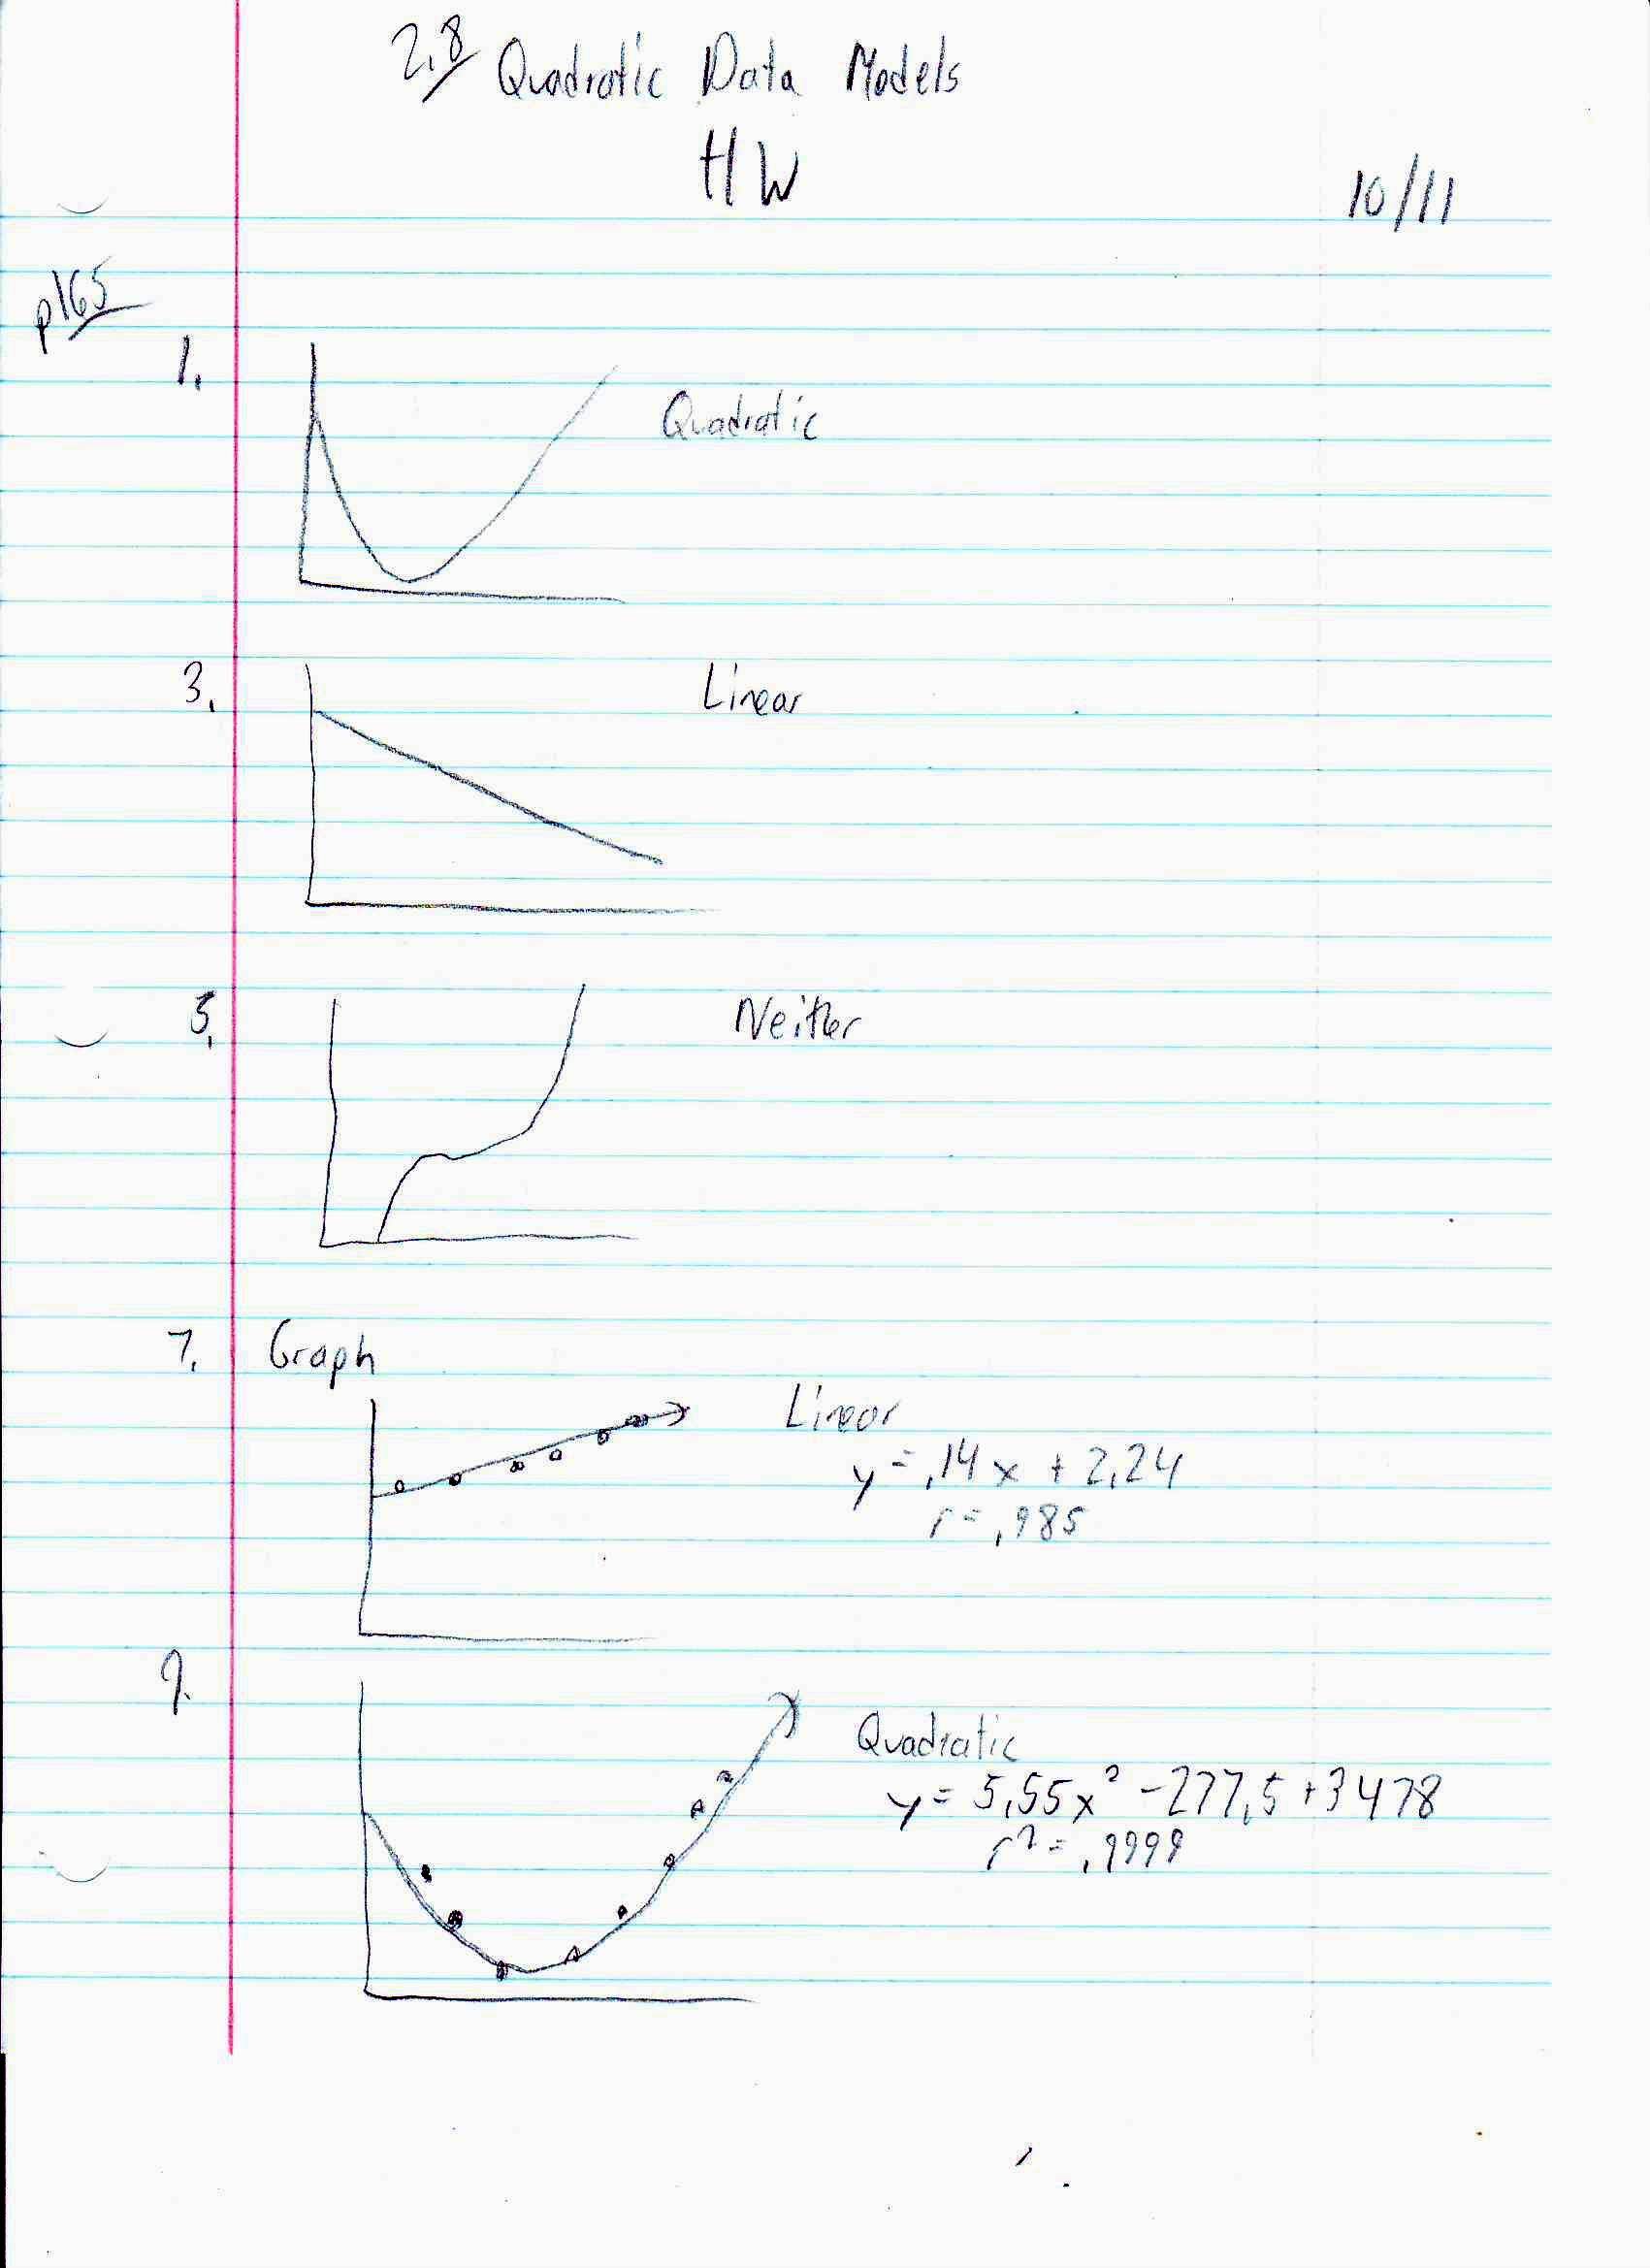 2.8 Quadratic Data Models
HW
10/11
p165
1.
Quadratic
3.
Linear
5.
Neither
7. Graph
Linear
y = .14x + 2.24
r = .985
9.
Quadratic
y = 5.55x² - 277.5 + 3478
r² = .9999